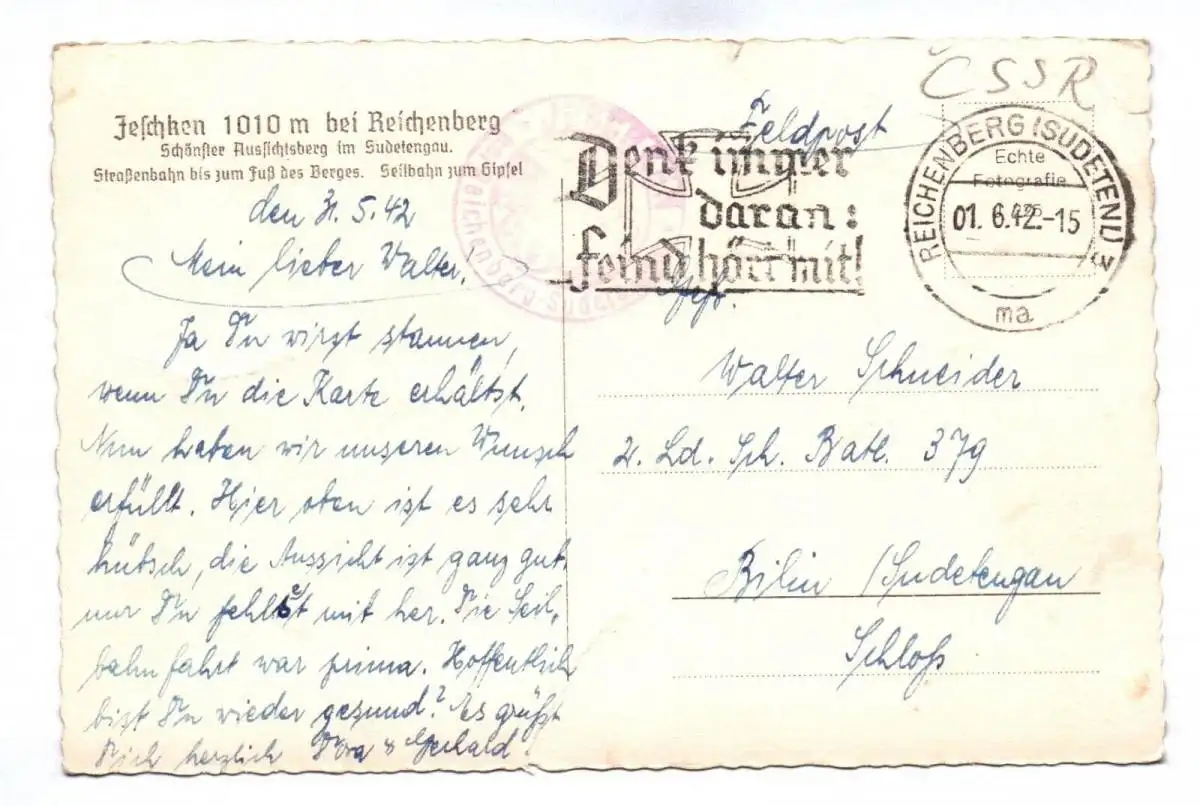 Jeschken 1010 m bei Reichenberg
Schönster Aussichtsberg im Sudetengau.
Straßenbahn bis zum Fuß des Berges. Seilbahn zum Gipfel
den 31. 5. 42
Mein lieber Walter,
Ja Du wirst staunen,
wenn Du die Karte erhältst.
Nun haben wir unseren Wunsch
erfüllt. Hier oben ist es sehr
hübsch, die Aussicht ist ganz gut
nur Du fehltest mit her. Die Seil-
bahnfahrt war prima. Hoffentlich
bist Du wieder gesund? Es grüßt
Dich herzlich & Gerhald.
ČSSR
Feldpost
Denk immer
daran:
Feind hört mit!
REICHENBERG (SUDETENL) 3
01. 6.42.-15
ma
Echte
Fotografie
Reichenberg
Walter Schneider
2. Ld. Sch. Batl. 379
Bilin /Sudetengau
Schloß